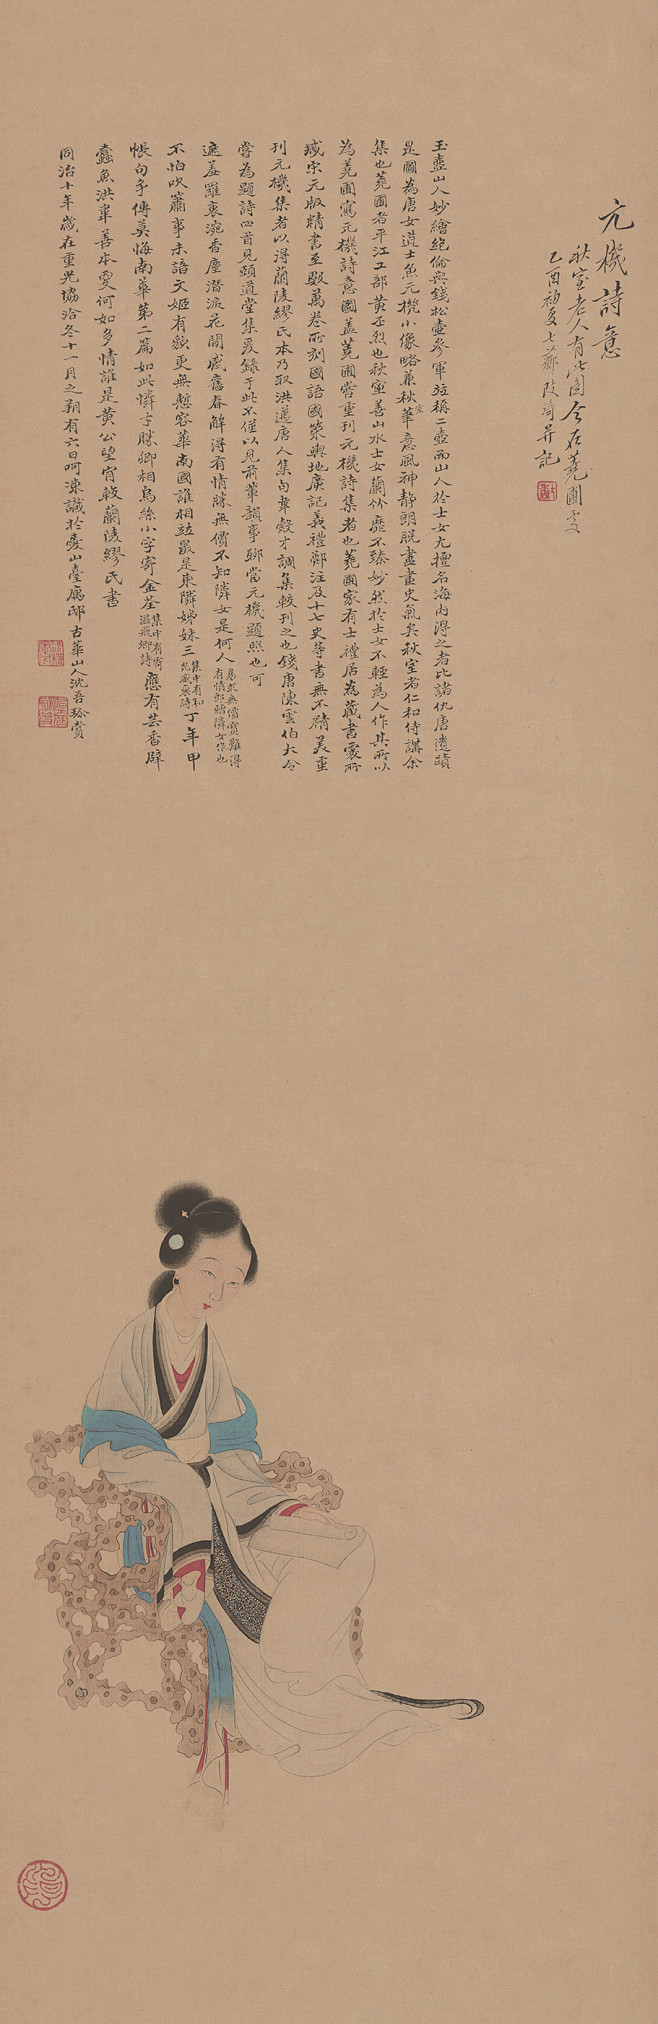 元機詩意
秋室老人有此圖今在蕘圃處
乙酉初夏七薌改琦并記
玉壺山人妙繪絕倫與錢松壺參軍並稱二壺而山人於士女尤擅名海內得之者比諸仇唐遺蹟
是圖為唐女道士魚元機小像略兼秋室華意風神靜朗脫盡畫史氣矣秋室者仁和侍講余
集也蕘圃者平江工部黃丕烈也秋室善山水士女蘭竹靡不臻妙然於士女不輕為人作其所以
為蕘圃寫元機詩意圖蓋蕘圃嘗重刊元機詩集者也蕘圃家有士禮居為藏書處所
藏宋元版精書至數萬卷所刻國語國策輿地廣記義禮鄭注及十七史等書無不精美重
刊元機集者以得蘭陵繆氏本乃取洪邁唐人集句韋縠才調集較刊之也錢唐陳雲伯大令
嘗為題詩四首見頤道堂集爰錄于此不僅以見前輩韻事聊當元機題照也可
遮羞羅裏涴香塵潛淚花間感舊春解得有情勝無價不知隣女是何人易求無價寶難得有情郎贈隣女作也
不怕吹簫事未諧文姬有額更無慙容華南國誰相並最是東隣姊妹三集中有和光威裒詩丁年甲
帳句手傳莫悔南華第二篇如此憐才勝卿相烏絲小字寄金荃集中有寄溫飛卿詩應有芸香辟
蠹魚洪韋善本更何如多情誰是黃公望肯較蘭陵繆氏書
同治十年歲在重光協洽冬十一月之朔有六日呵凍識於愛山臺廨邸古華山人沈吾珍賞